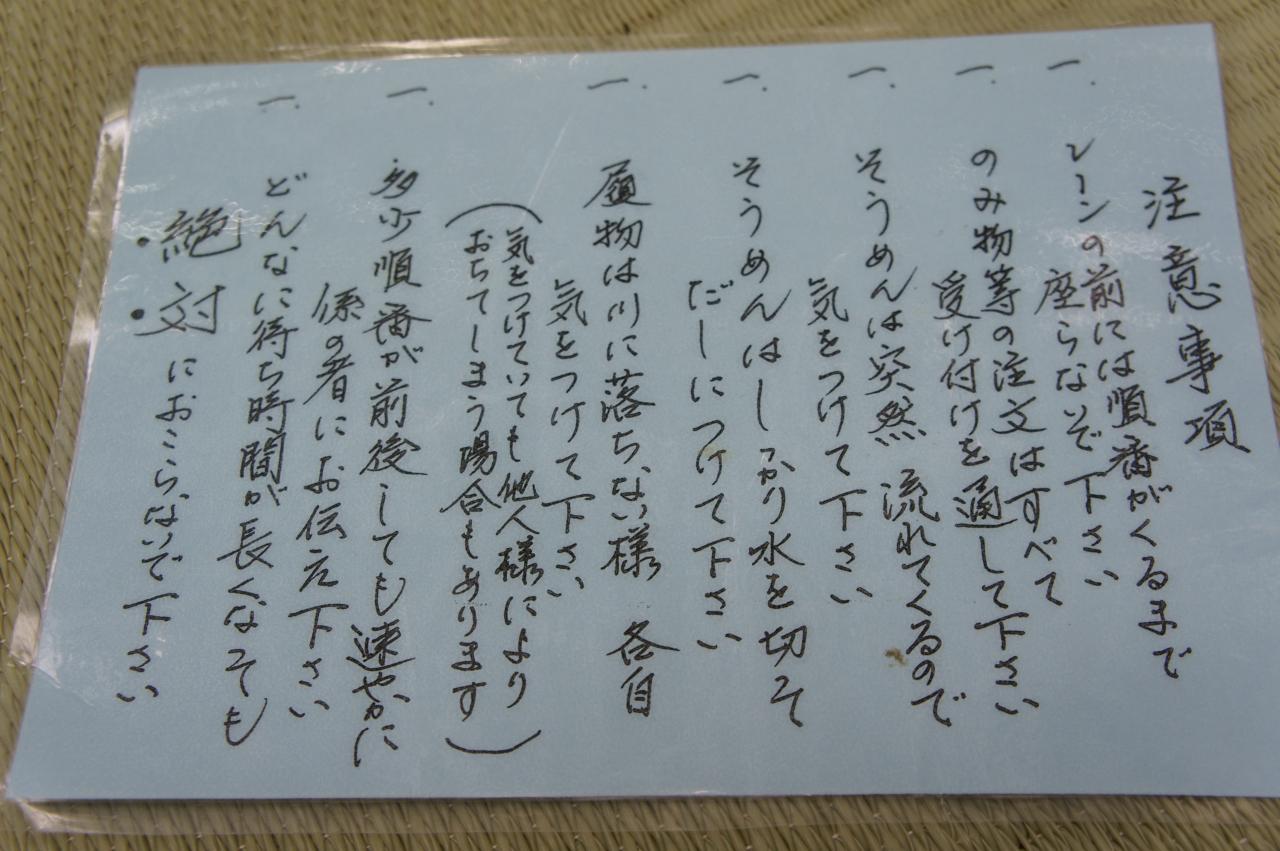 注意事項
一、レーンの前には順番がくるまで
座らないで下さい
一、のみ物等の注文はすべて
受け付けを通して下さい
一、そうめんは突然 流れてくるので
気をつけて下さい
一、そうめんはしっかり水を切って
だしにつけて下さい
一、履物は川に落ちない様 各自
気をつけて下さい
(気をつけていても他人様により
おちてしまう場合もあります)
一、多少順番が前後しても速やかに
係の者にお伝え下さい
一、どんなに待ち時間が長くなっても
絶対におこらないで下さい